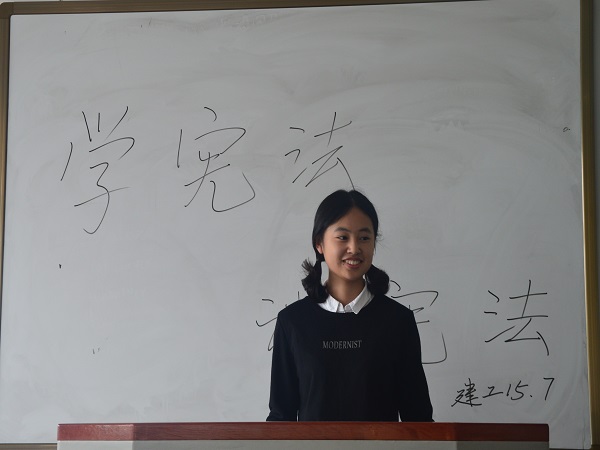 学宪法
宪法
MODERNIST
建工15.7